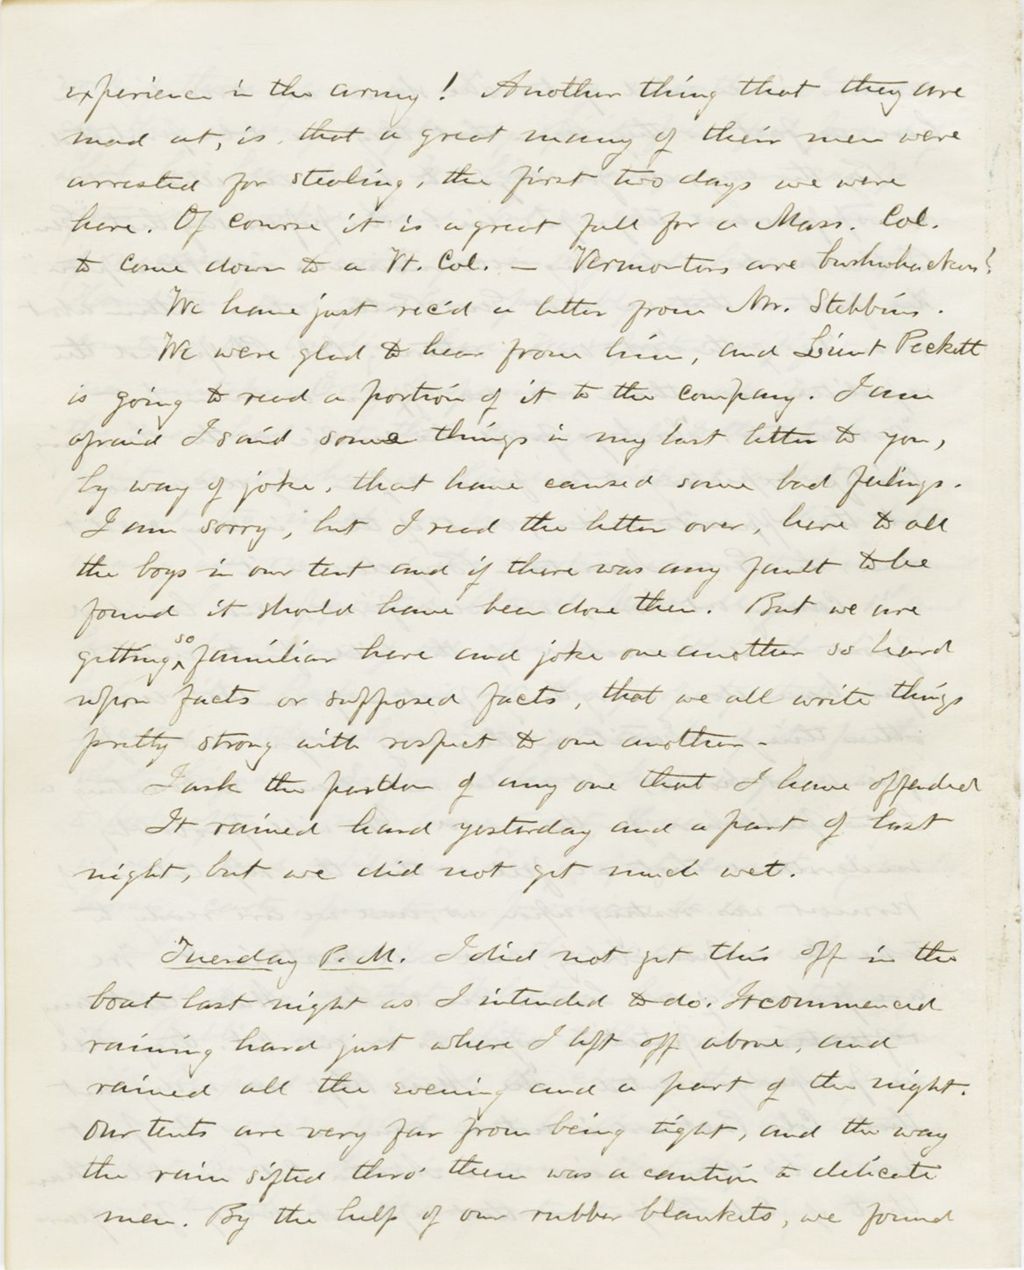 experience in the army! Another thing that they are
mad at, is, that a great many of their men were
arrested for stealing, the first two days we were
here. Of course it is a great fall for a Mass. Col.
to come down to a Vt. Col. — Vermonters are bushwhackers!
We have just rec'd a letter from Mr. Stebbins.
We were glad to hear from him, and Lieut Peckett
is going to read a portion of it to the company. I am
afraid I said some things in my last letter to you,
by way of joke, that have caused some bad feelings.
I am sorry, but I read the letter over, here to all
the boys in our tent and if there was any fault to be
found it should have been done then. But we are
getting so familiar here and joke one another so hard
upon facts or supposed facts, that we all write things
pretty strong with respect to one another -
I ask the pardon of any one that I have offended
It rained hard yesterday and a part of last
night, but we did not get much wet.
Tuesday P.M. I did not get this off in the
boat last night as I intended to do. It commenced
raining hard just where I left off above, and
rained all the evening and a part of the night.
Our tents are very far from being tight, and the way
the rain sifted thro' them was a caution to delicate
men. By the help of our rubber blankets, we found